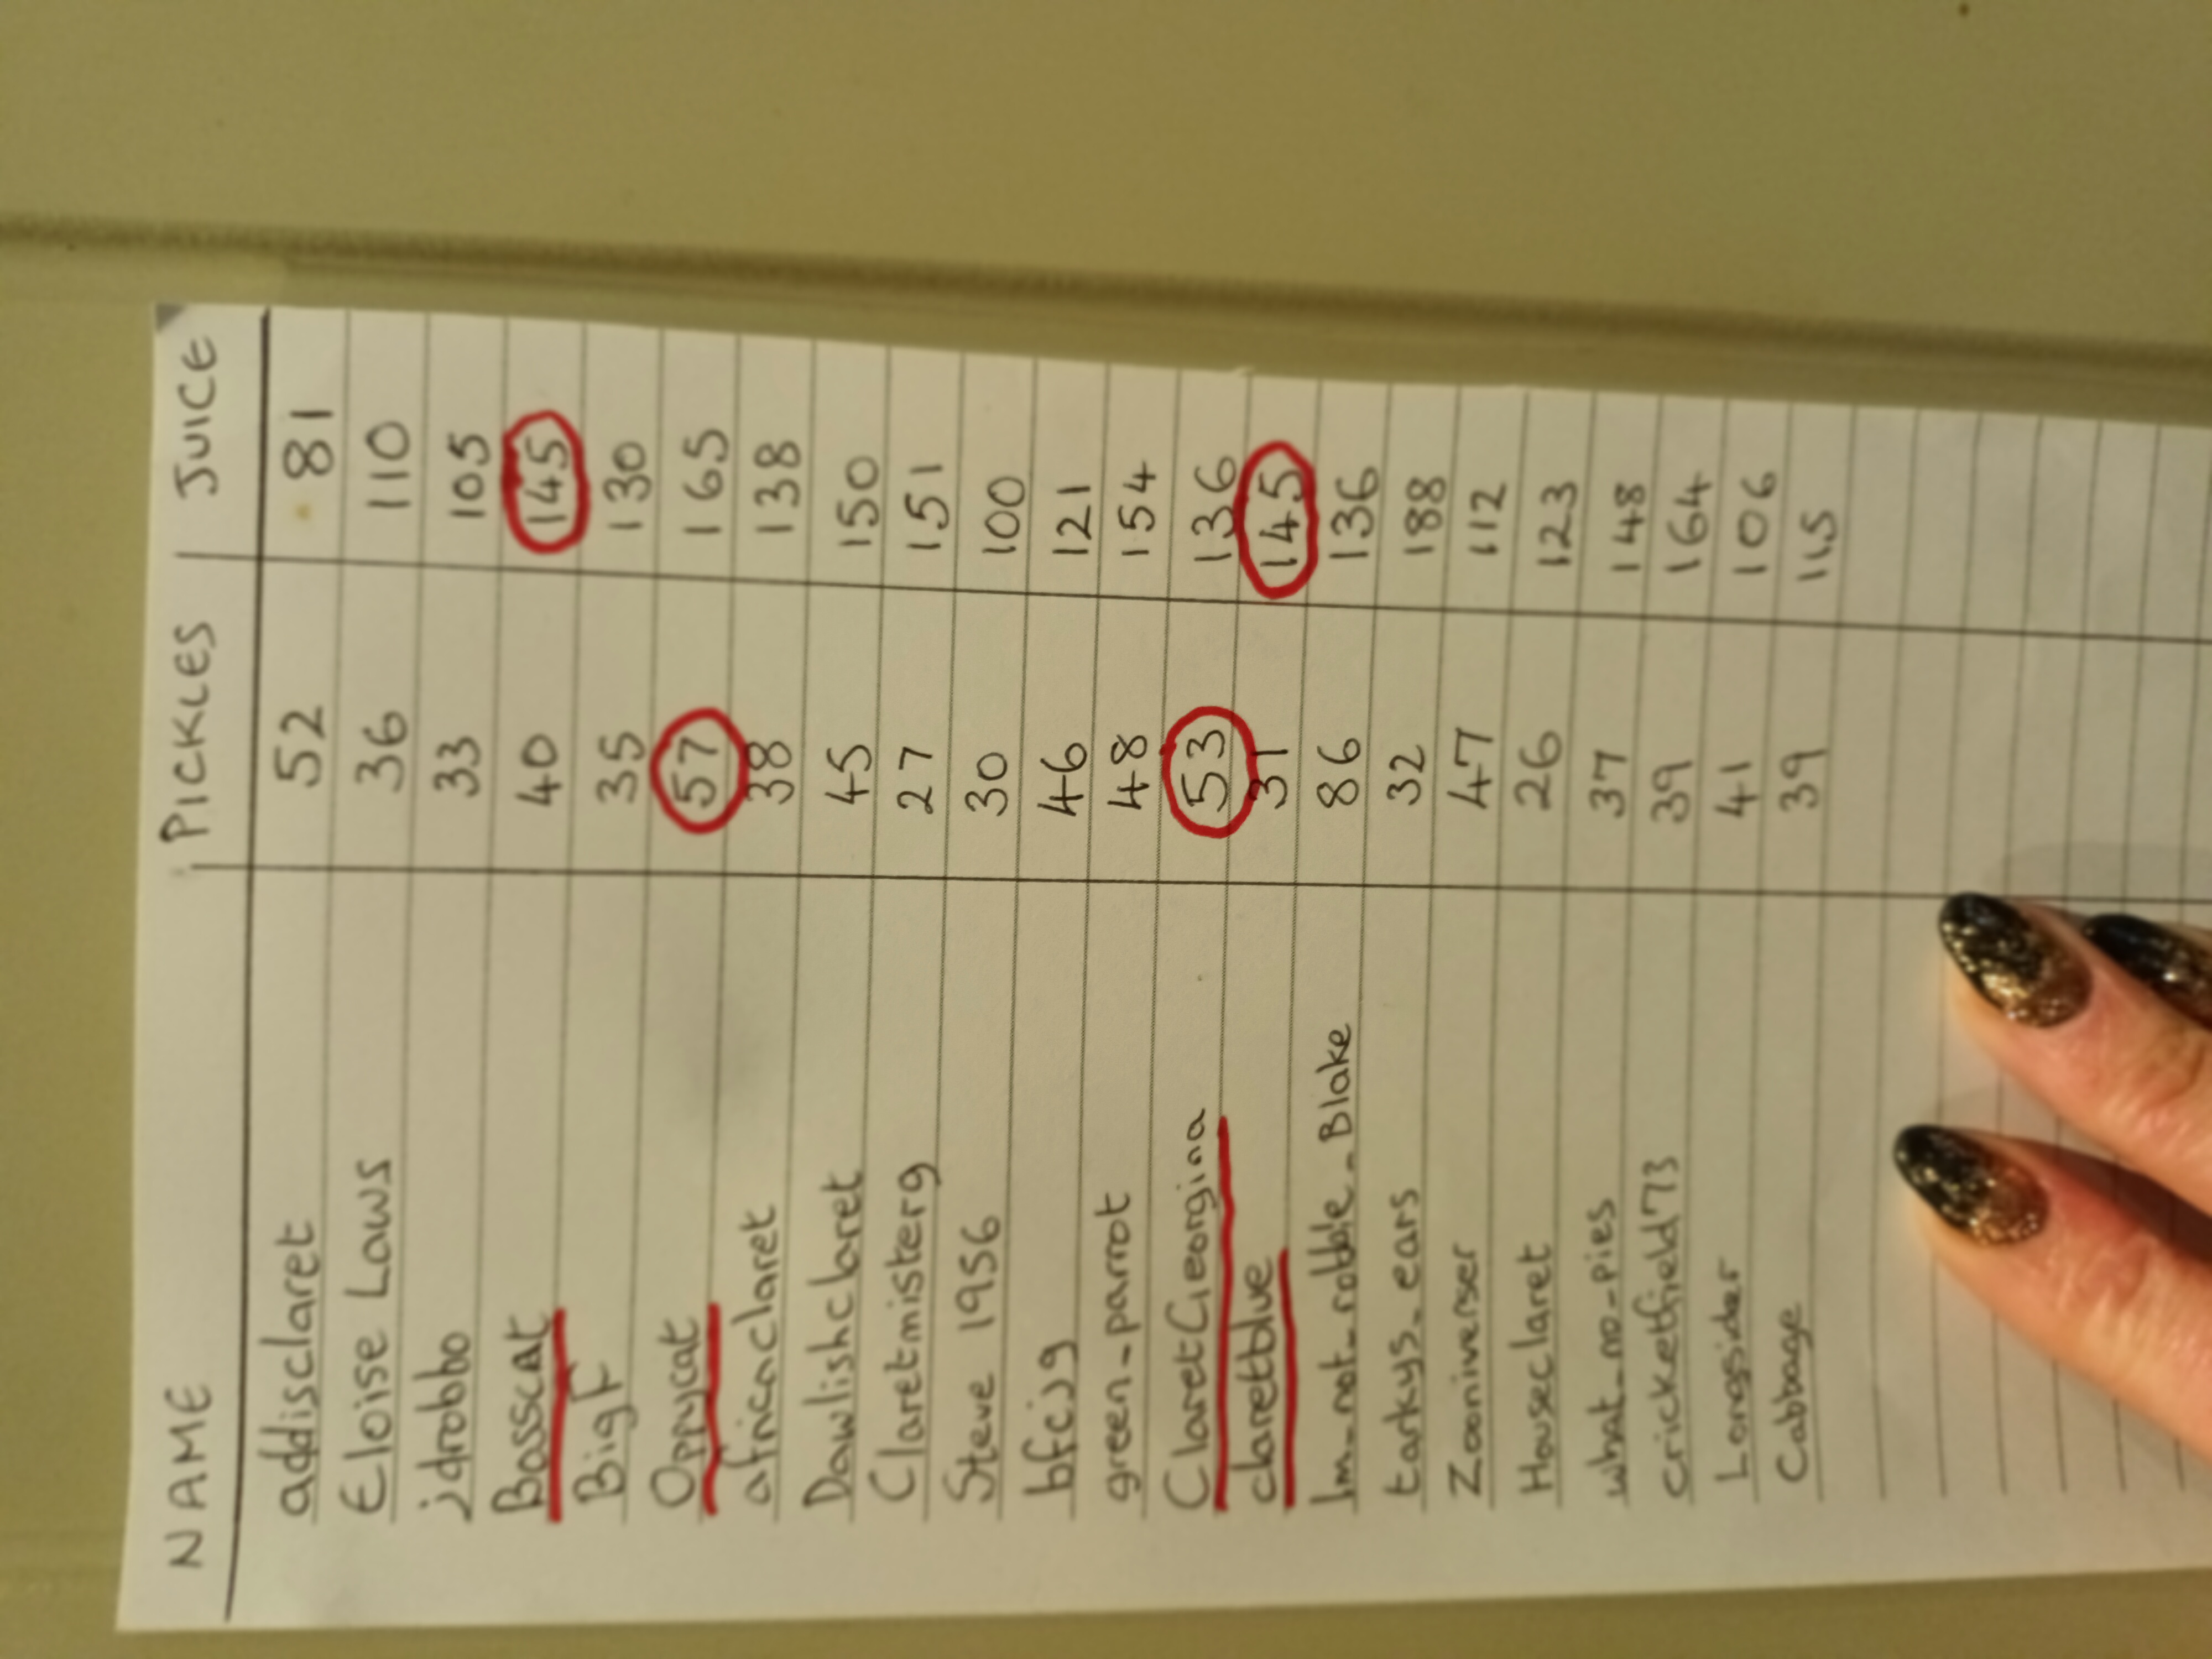 NAME PICKLES JUICE
addisclaret 52 81
Eloise Laws 36 110
jdrobbo 33 105
Bosscat 40 145
BigF 35 130
Oppycat 57 165
africanclaret 38 138
Dawlishclaret 45 150
Claretmisterg 27 151
Steve 1956 30 100
bfcjg 46 121
green-parrot 48 154
ClaretGeorgina 53 136
claretblue 31 145
Im_not_robbie_Blake 86 136
tarkys_ears 32 188
Zooniverser 47 112
Houseclaret 26 123
what_no_pies 37 148
cricketfield73 39 164
Longsider 41 106
Cabbage 39 115